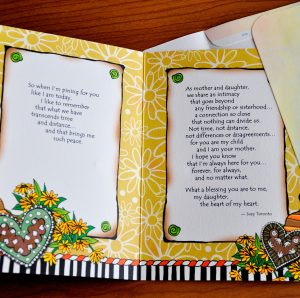 So when I'm pining for you
like I am today,
I like to remember
that what we have
transcends time
and distance...
and that brings me
such peace.
As mother and daughter,
we share an intimacy
that goes beyond
any friendship or sisterhood...
a connection so close
that nothing can divide us.
Not time, not distance,
not differences or disagreements...
for you are my child
and I am your mother.
I hope you know
that I'm always here for you...
forever, for always,
and no matter what.
What a blessing you are to me,
my daughter,
the heart of my heart.
— Suzy Toronto